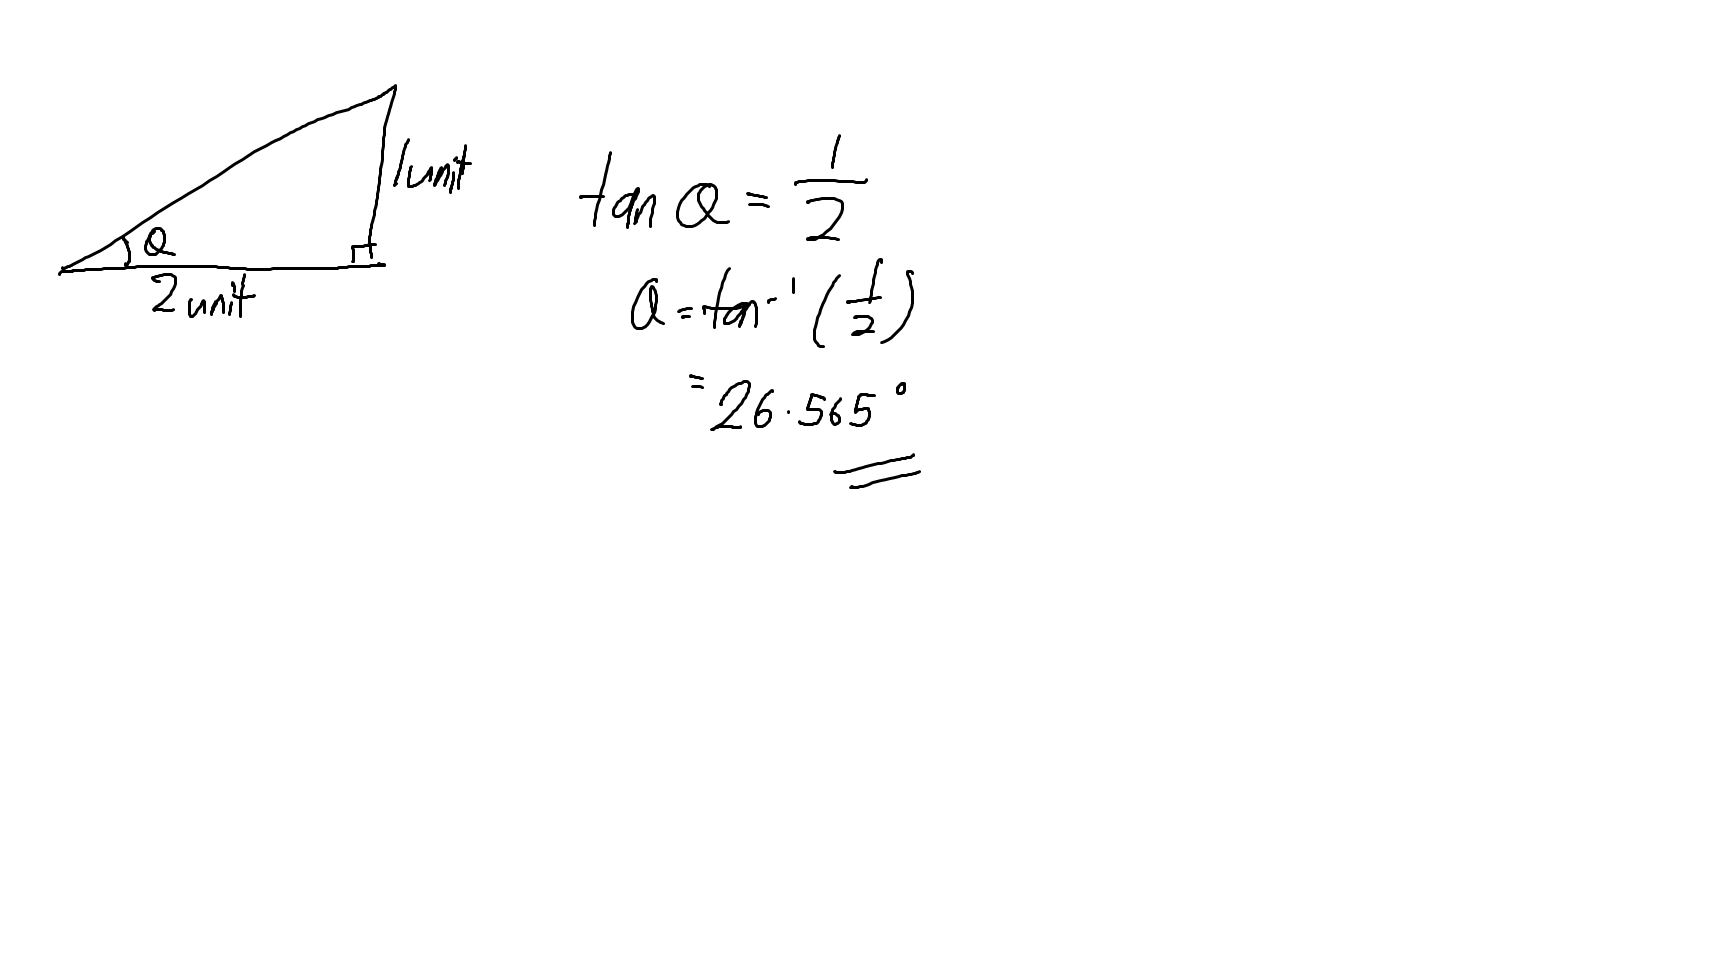 1 unit
Q
2 unit
tan Q = 1/2
Q = tan⁻¹ (1/2)
= 26.565°